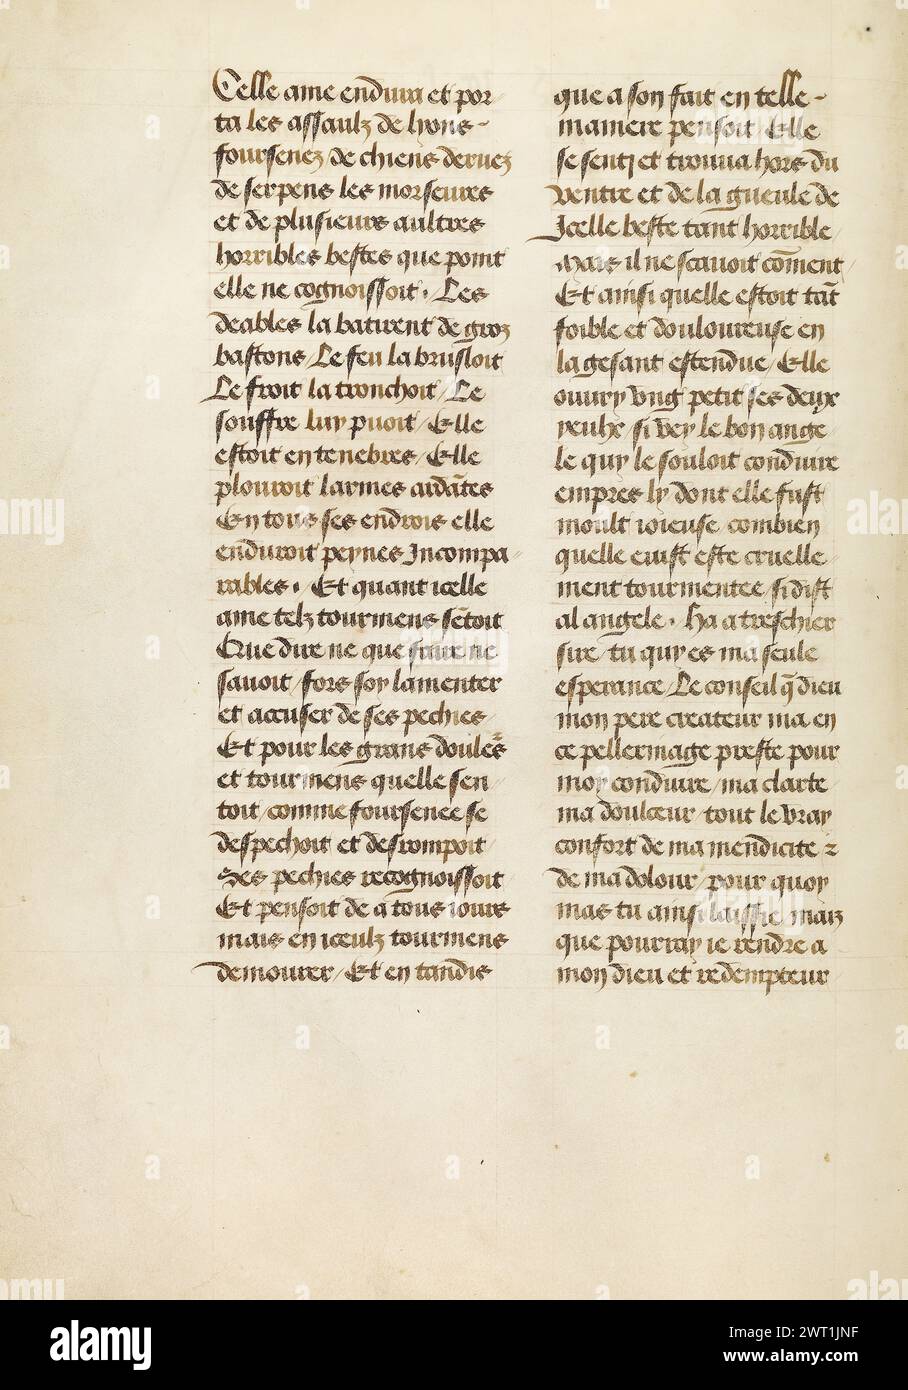 Celle ame endura et por-
ta les assaulz de lyons-
foursenez de chiens deruez
de serpens les morseures
et de plusieurs aultres
horribles bestes que point
elle ne cognoissoit . Les
deables la batirent de groz
bastons / Le feu la brusloit
Le froit la tronchoit / Le
souffre luy puoit / Elle
estoit en tenebres / Elle
plouroit larmes ardātes
En tous ses endrois elle
enduroit peynes Incompa
rables . Et quant icelle
ame telz tourmens sētoit
Que dire ne que faire ne
sauoit / fors soy lamenter
et accuser de ses pechies /
Et pour les grans doule's
et tourmens quelle sen
toit / comme foursenee se
despechoit et desrompoit /
Ses pechies recognoissoit
Et pensoit de a tous iours
mais en iceulz tourmens
demourer / Et en tandis
que a son fait en telle-
maniere pensoit Elle
se senti et trouua hors du
ventre et de la gueule de
Icelle beste tant horrible
Mais il ne scauoit cōment /
Et ainsi quelle estoit tāt
foible et douloureuse en
la gesant estendue / Elle
ouury vng petit ses deux
yeulx / si vey le bon ange
le quy le souloit conduire
empres ly dont elle fust
moult ioieuse / combien
quelle euist este cruelle-
ment tourmentee / si dist
al angele . Ha a treschier
sire / tu quy es ma seule
esperance / Le conseil q̄ dieu
mon pere createur ma en
ce pellerinage preste pour
moy conduire / ma clarte
ma doulceur / tout le vray
confort de ma mendicite z
de ma dolour / pour quoy
mas tu ainsi laissie / maiz
que pourray ie rendre a
mon dieu et redempteur
alamy
Image ID: 2WT1JNF
www.alamy.com